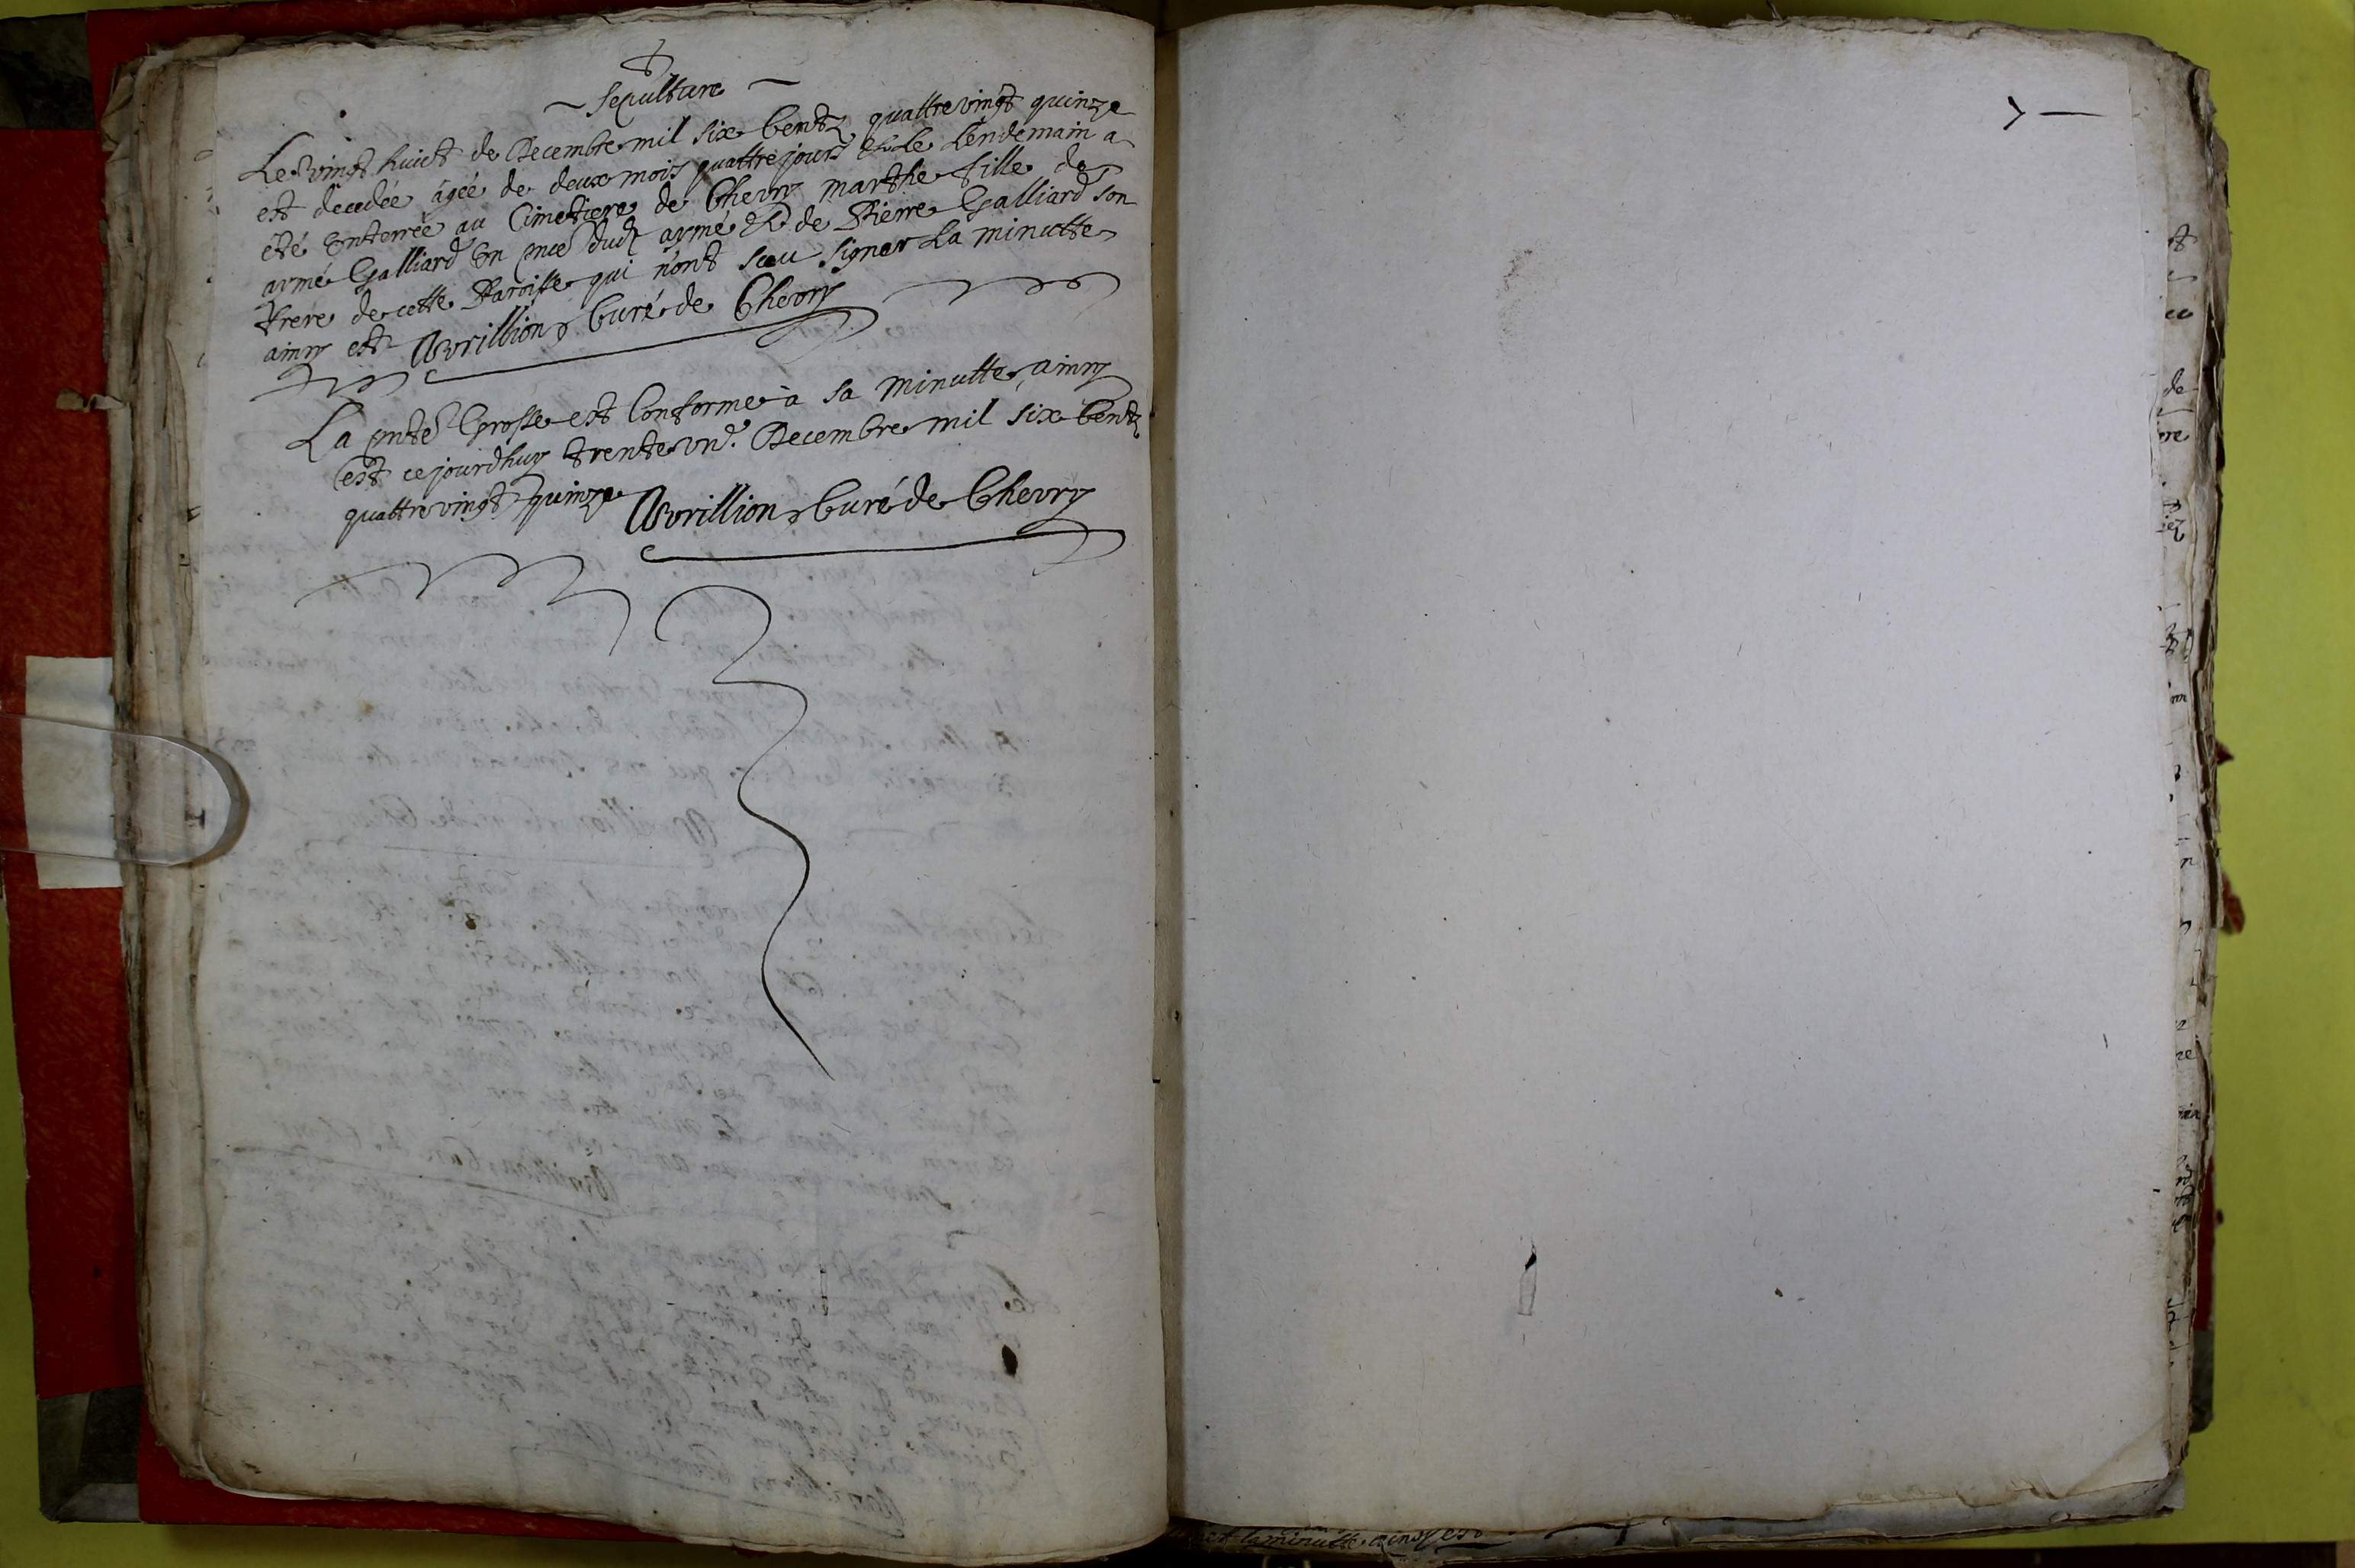 Sepulture
Le vingt huict de Decembre mil six Centz quattre vingt quinze
est decedée âgée de deux mois quattre jours Et Le Lendemain a
été Enterrée au Cimetiere de Chevry marthe fille de
aymé Galliard En pnce dudt aymé Et de Pierre Galliard son
frere de cette Paroisse qui n'ont sceu signer La minutte
ainsy est Avrillion Curé de Chevry
La pnte Grosse est Conforme à sa minutte, ainsy
est ce jourdhuy trente un.e Decembre mil six Centz
quattre vingt quinze Avrillion Curé de Chevry
la minutte, ainsy est